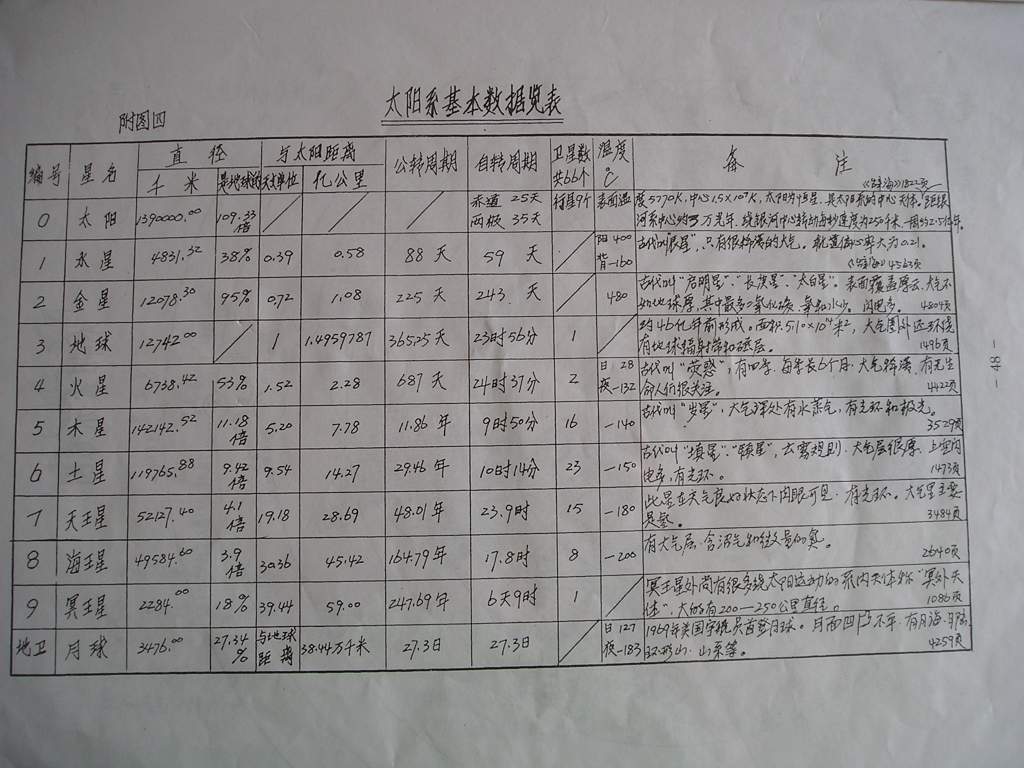 附图四
太阳系基本数据览表
编号 星名 直径 与太阳距离 公转周期 自转周期 卫星数 温度 备注
千米 是地球的 天文单位 亿公里 共66个 ℃ 《辞海》1822页
0 太阳 1390000.00 109.33倍 / / / 赤道 25天 行星9个 表面温度5770K,中心1.5×10⁷K,太阳为恒星,是太阳系的中心天体。距银
两极 35天 河系中心约3万光年,绕银河中心转动每秒速度为250千米
1 水星 4831.32 38% 0.39 0.58 88天 59天 / 阳 400 古代叫"辰星",只有很稀薄的大气。
背-160 《辞海》4563页
2 金星 12078.30 95% 0.72 1.08 225天 243天 / 480 古代叫"启明星"、"长庚星"、"太白星"。表面覆盖厚云、大气
4804页
3 地球 12742.00 / 1 1.4959787 365.25天 23时56分 1 / 约46亿年前形成。面积510×10¹⁴米²,大气圈外还环绕
有地球辐射带和磁层。 1496页
4 火星 6738.42 53% 1.52 2.28 687天 24时37分 2 日 28 古代叫"荧惑",有四季,每季长6个月,大气稀薄,有无生
夜-132 命人们很关注。 4422页
5 木星 142142.52 11.18倍 5.20 7.78 11.86年 9时50分 16 -140 古代叫"岁星",大气深处有水蒸气,有光环和极光。
3529页
6 土星 119765.88 9.42倍 9.54 14.27 29.46年 10时14分 23 -150 古代叫"填星"、"镇星",大气层很厚
有光环。 1473页
7 天王星 52127.40 4.1倍 19.18 28.69 48.01年 23.9时 15 -180 此星在天气良好状态下肉眼可见,有光环。大气里主要
是氢。 3484页
8 海王星 49584.60 3.9倍 30.36 45.42 164.79年 17.8时 8 -200 有大气层,含沼气和微量的氨。
2640页
9 冥王星 2284.00 18% 39.44 59.00 247.69年 6天9时 1 / 冥王星外尚有很多绕太阳运动的系内天体称"冥外天
体",大的有200—250公里直径。 1086页
地卫 月球 3476.00 27.34% 与地球距离 38.44万千米 27.3日 27.3日 / 日 127 1969年美国宇航员首登月球。月面凹凸不平,有月海、
夜-183 环形山、山系等。 4259页
-48-